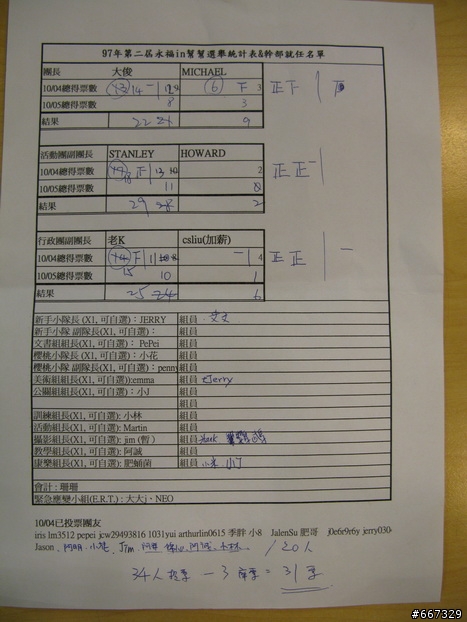 97年第二屆永福in幫幫選舉統計表&幹部就任名單
團長 大俊 MICHAEL
10/04總得票數 14 6 下 3 正下
10/05總得票數 8 3
結果 22 9
活動團副團長 STANLEY HOWARD
10/04總得票數 正 2 正正一
10/05總得票數 11 0
結果 29 2
行政團副團長 老K csliu(加薪)
10/04總得票數 一 4 正正 一
10/05總得票數 10 1
結果 25 6
新手小隊長 (X1, 可自選)：JERRY 組員
新手小隊 副隊長(X1, 可自選)： 組員
文書組組長(X1, 可自選)： PePei 組員
櫻桃小隊長 (X1, 可自選)：小花 組員
櫻桃小隊 副隊長(X1, 可自選)：penny 組員
美術組組長(X1, 可自選):emma 組員 Jerry
公關組組長(X1, 可自選)：小J 組員
組員
訓練組長(X1, 可自選): 小林 組員
活動組長(X1, 可自選): Martin 組員
攝影組長(X1, 可自選): jim (暫) 組員 Mark
教學組長(X1, 可自選): 阿誠 組員
康樂組長(X1, 可自選): 肥蛹菌 組員 小米 小丁
會計：珊珊
緊急應變小組(E.R.T.)：大大j，NEO
10/04已投票團友
iris lm3512 pepei jcw29493816 1031yui arthurlin0615 季胖 小8 JalenSu 肥哥 j0e6r9r6y jerry030
Jason 、阿明、小花、Jim、 阿誠、小林、 /20人
34人投票 － 3 廢票 = 31票
#667329